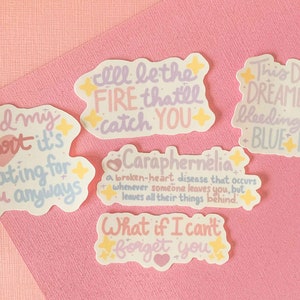 I'll be the
FIRE that'll
catch YOU
This
DREAM
bleeding
BLUE
my
it's
for
anyways
Caraphernelia
a broken-heart disease that occurs
whenever someone leaves you, but
leaves all their things behind.
What if I can't
forget you